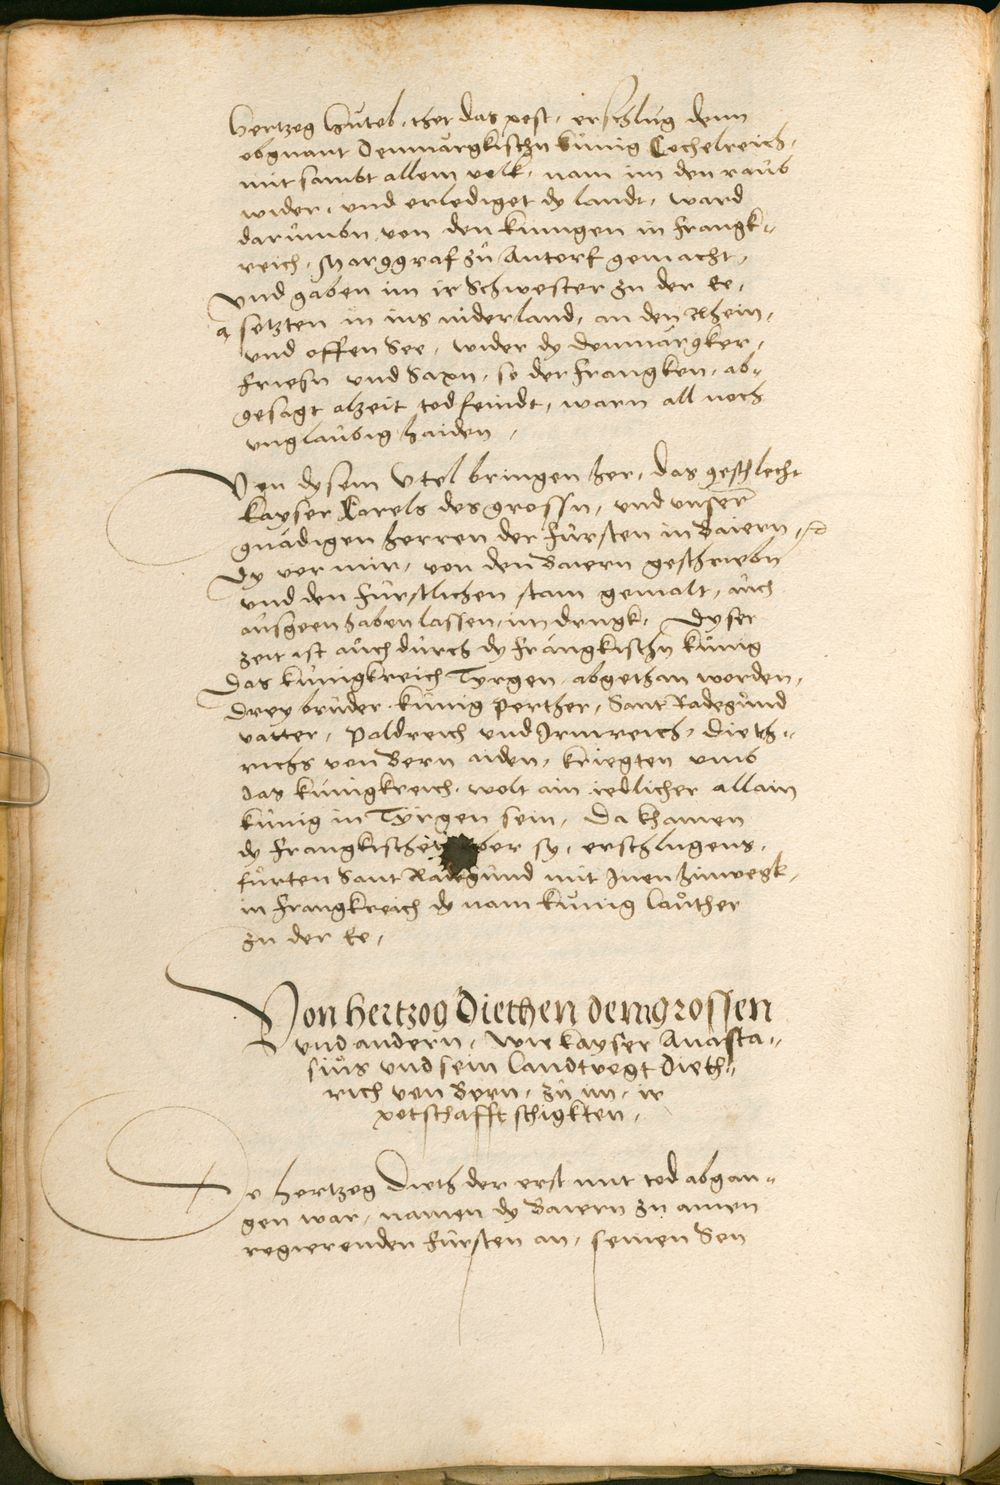 Hertzog Hůtel, thet das pest, erschlůg denn
obgnant Dennmärgkischn künig Cochelreich,
mit sambt allem volk, nam im den raůb
wider, und erlediget dy landt, ward
darůmbn von den künigen in Frangk„
reich, Marggraf zů Antorf gemacht,
Und gaben im ir Schwester zu der Ee,
setzten in ins niderland, an den Rhein,
und offen See, wider dy dennmärgker,
Friesn und Saxn, so der Frangken, ab„
gesagt alzeit todfeindt, warn all noch
unglaůbig haiden,
Von dysem Utel bringen her, das geschlecht
kayser Carels des grossn, und unser
gnädigen herren der Fürsten in Baiern,
Dy vor mir, von den Baiern geschriebn
und den Fürstlichen stam gemalt, auch
aůsgeen haben lassen, im drugk, Dyser
zeit ist aůch důrch dy Frängkischn künig
Das künigkreich Tyrgen abgethan worden,
Drey brüder künig Perther, Sant Radegůnd
vatter, Paldreich und Irmreich, Dieth„
richs von Bern aiden, kriegten umb
das künigkreich, wolt ain iedlicher allain
künig in Tyrgen sein, Da khamen
dy Frangkischen über sy, erschlugens,
fürten Sant Radegůnd mit Inen hinwegk,
in Frangkreich dy nam künig Laůther
zu der Ee,
Von Hertzog Diethen dem grossen
und andern, wie kayser Anasta„
siůs und sein Landtvogt Dieth„
rich von Bern, zů im, ir
potschafft schigkten,
Do Hertzog Dieth der erst mit tod abgan„
gen war, namen dy Baiern zu ainen
regierenden Fürsten an, seinen Son